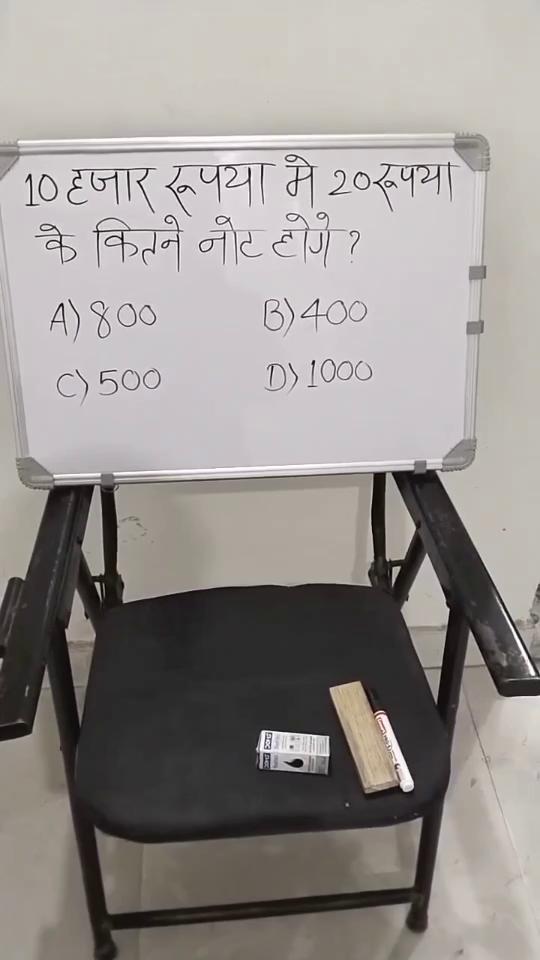 10 हजार रूपया मे 20 रूपया
के कितने नोट होगे ?
A) 800
B) 400
C) 500
D) 1000